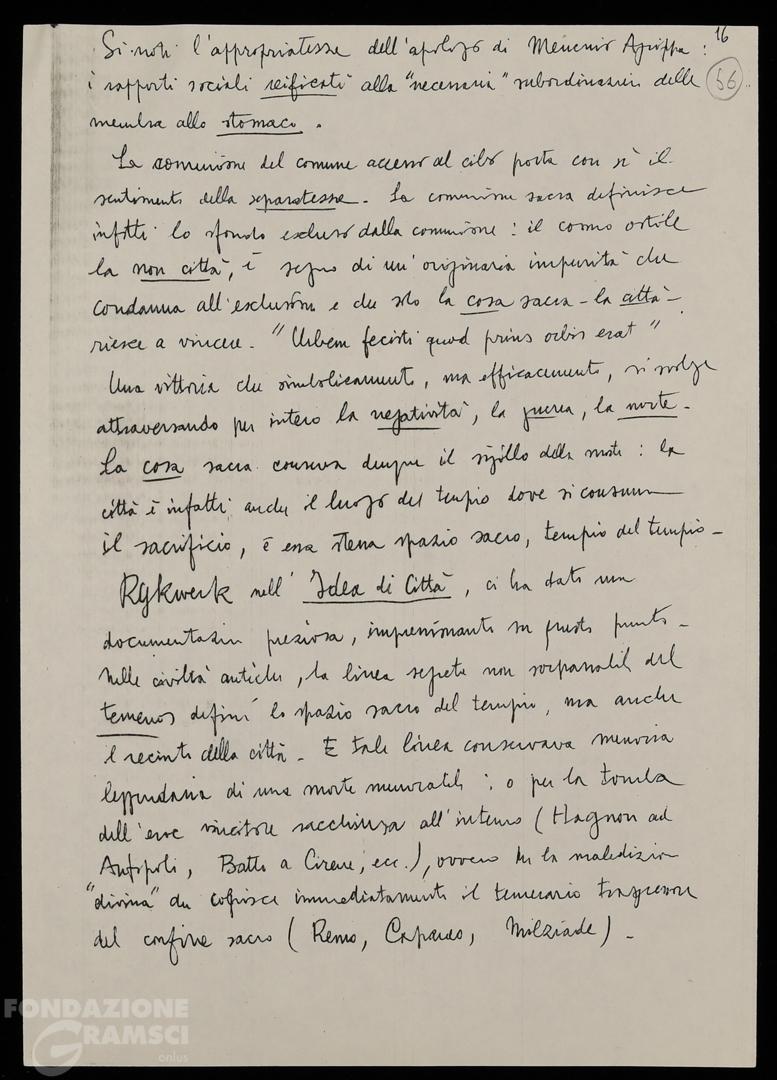 16
Si noti l'appropriatezza dell'apologo di Menenio Agrippa :
56
i rapporti sociali reificati alla "necessaria" subordinazione delle
membra allo stomaco .
La comunione del comune accesso al cibo porta con sé il
sentimento della separatezza - La comunione sacra definisce
infatti lo sfondo escluso dalla comunione : il cosmo ostile
la non città, è segno di un'originaria impurità che
condanna all'esclusione e che solo la cosa sacra - la città -
riesce a vincere - "Urbem fecisti quod prius orbis erat"
Una vittoria che simbolicamente, ma efficacemente, si svolge
attraversando per intero la negatività, la guerra, la morte -
La cosa sacra conserva dunque il sigillo della morte : la
città è infatti anche il luogo del tempio dove si consuma
il sacrificio, è essa stessa spazio sacro, tempio del tempio -
Rykwerk nell' Idea di Città, ci ha dato una
documentazione preziosa, impressionante su questo punto -
Nelle civiltà antiche, la linea segreta non sorpassabile del
temenos definì lo spazio sacro del tempio, ma anche
il recinto della città - E tale linea conservava memoria
leggendaria di una morte memorabile : o per la tomba
dell'eroe vincitore racchiusa all'interno (Hagnon ad
Anfipoli, Batto a Cirene, ecc.), ovvero per la maledizione
"divina" che colpisce immediatamente il temerario trasgressore
del confine sacro (Remo, Capaneo, Milziade) -
FONDAZIONE
GRAMSCI
onlus